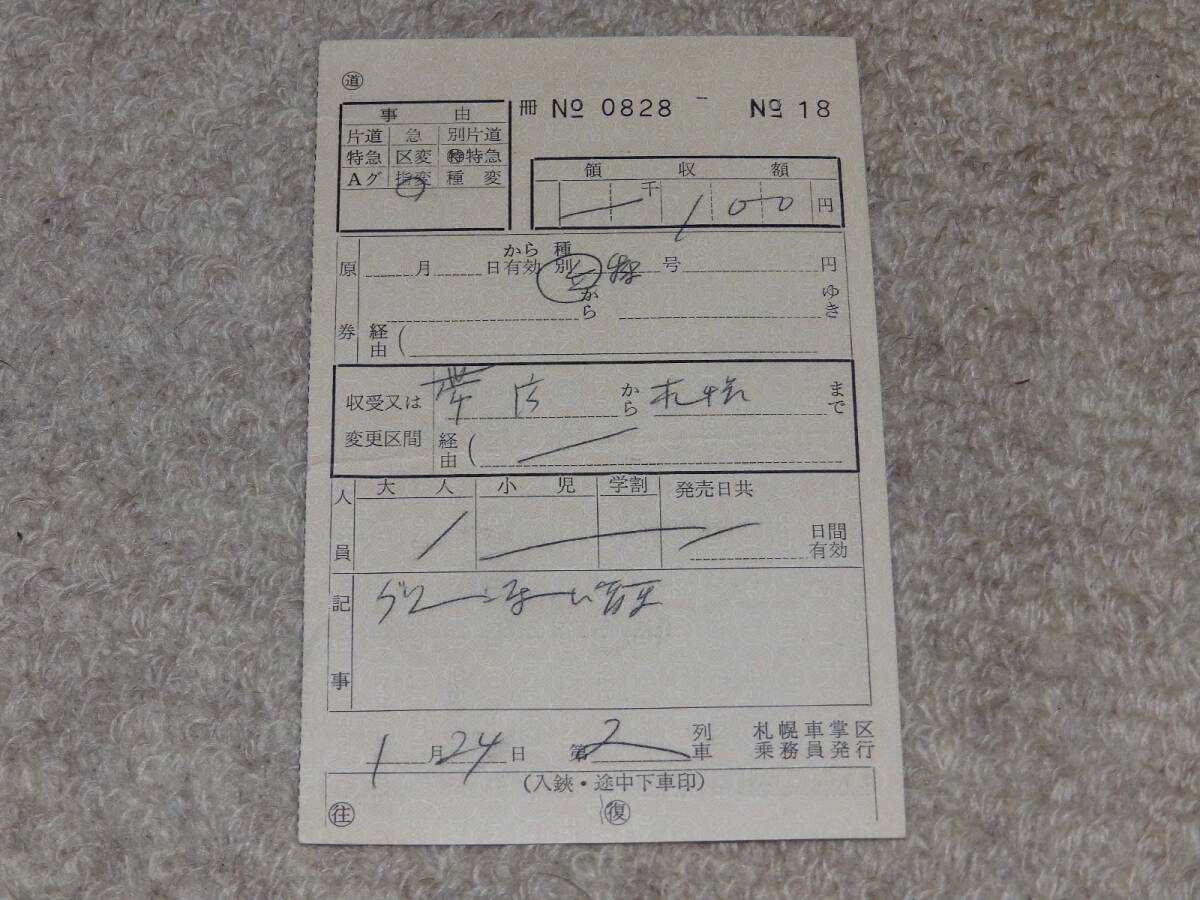 道
事由
冊 № 0828 - № 18
片道 急 別片道
特急 区変 特特急
Aグ 指変 種変
領収額
千 1 00 円
原券
月 日から有効 種別 号 円
から ゆき
経由 (
収受又は変更区間
帯広 から 札幌 まで
経由 (
人員 大人 小児 学割 発売日共
1 日間有効
記事
1月24日 第2列車 札幌車掌区乗務員発行
(入鋏・途中下車印)
往 復